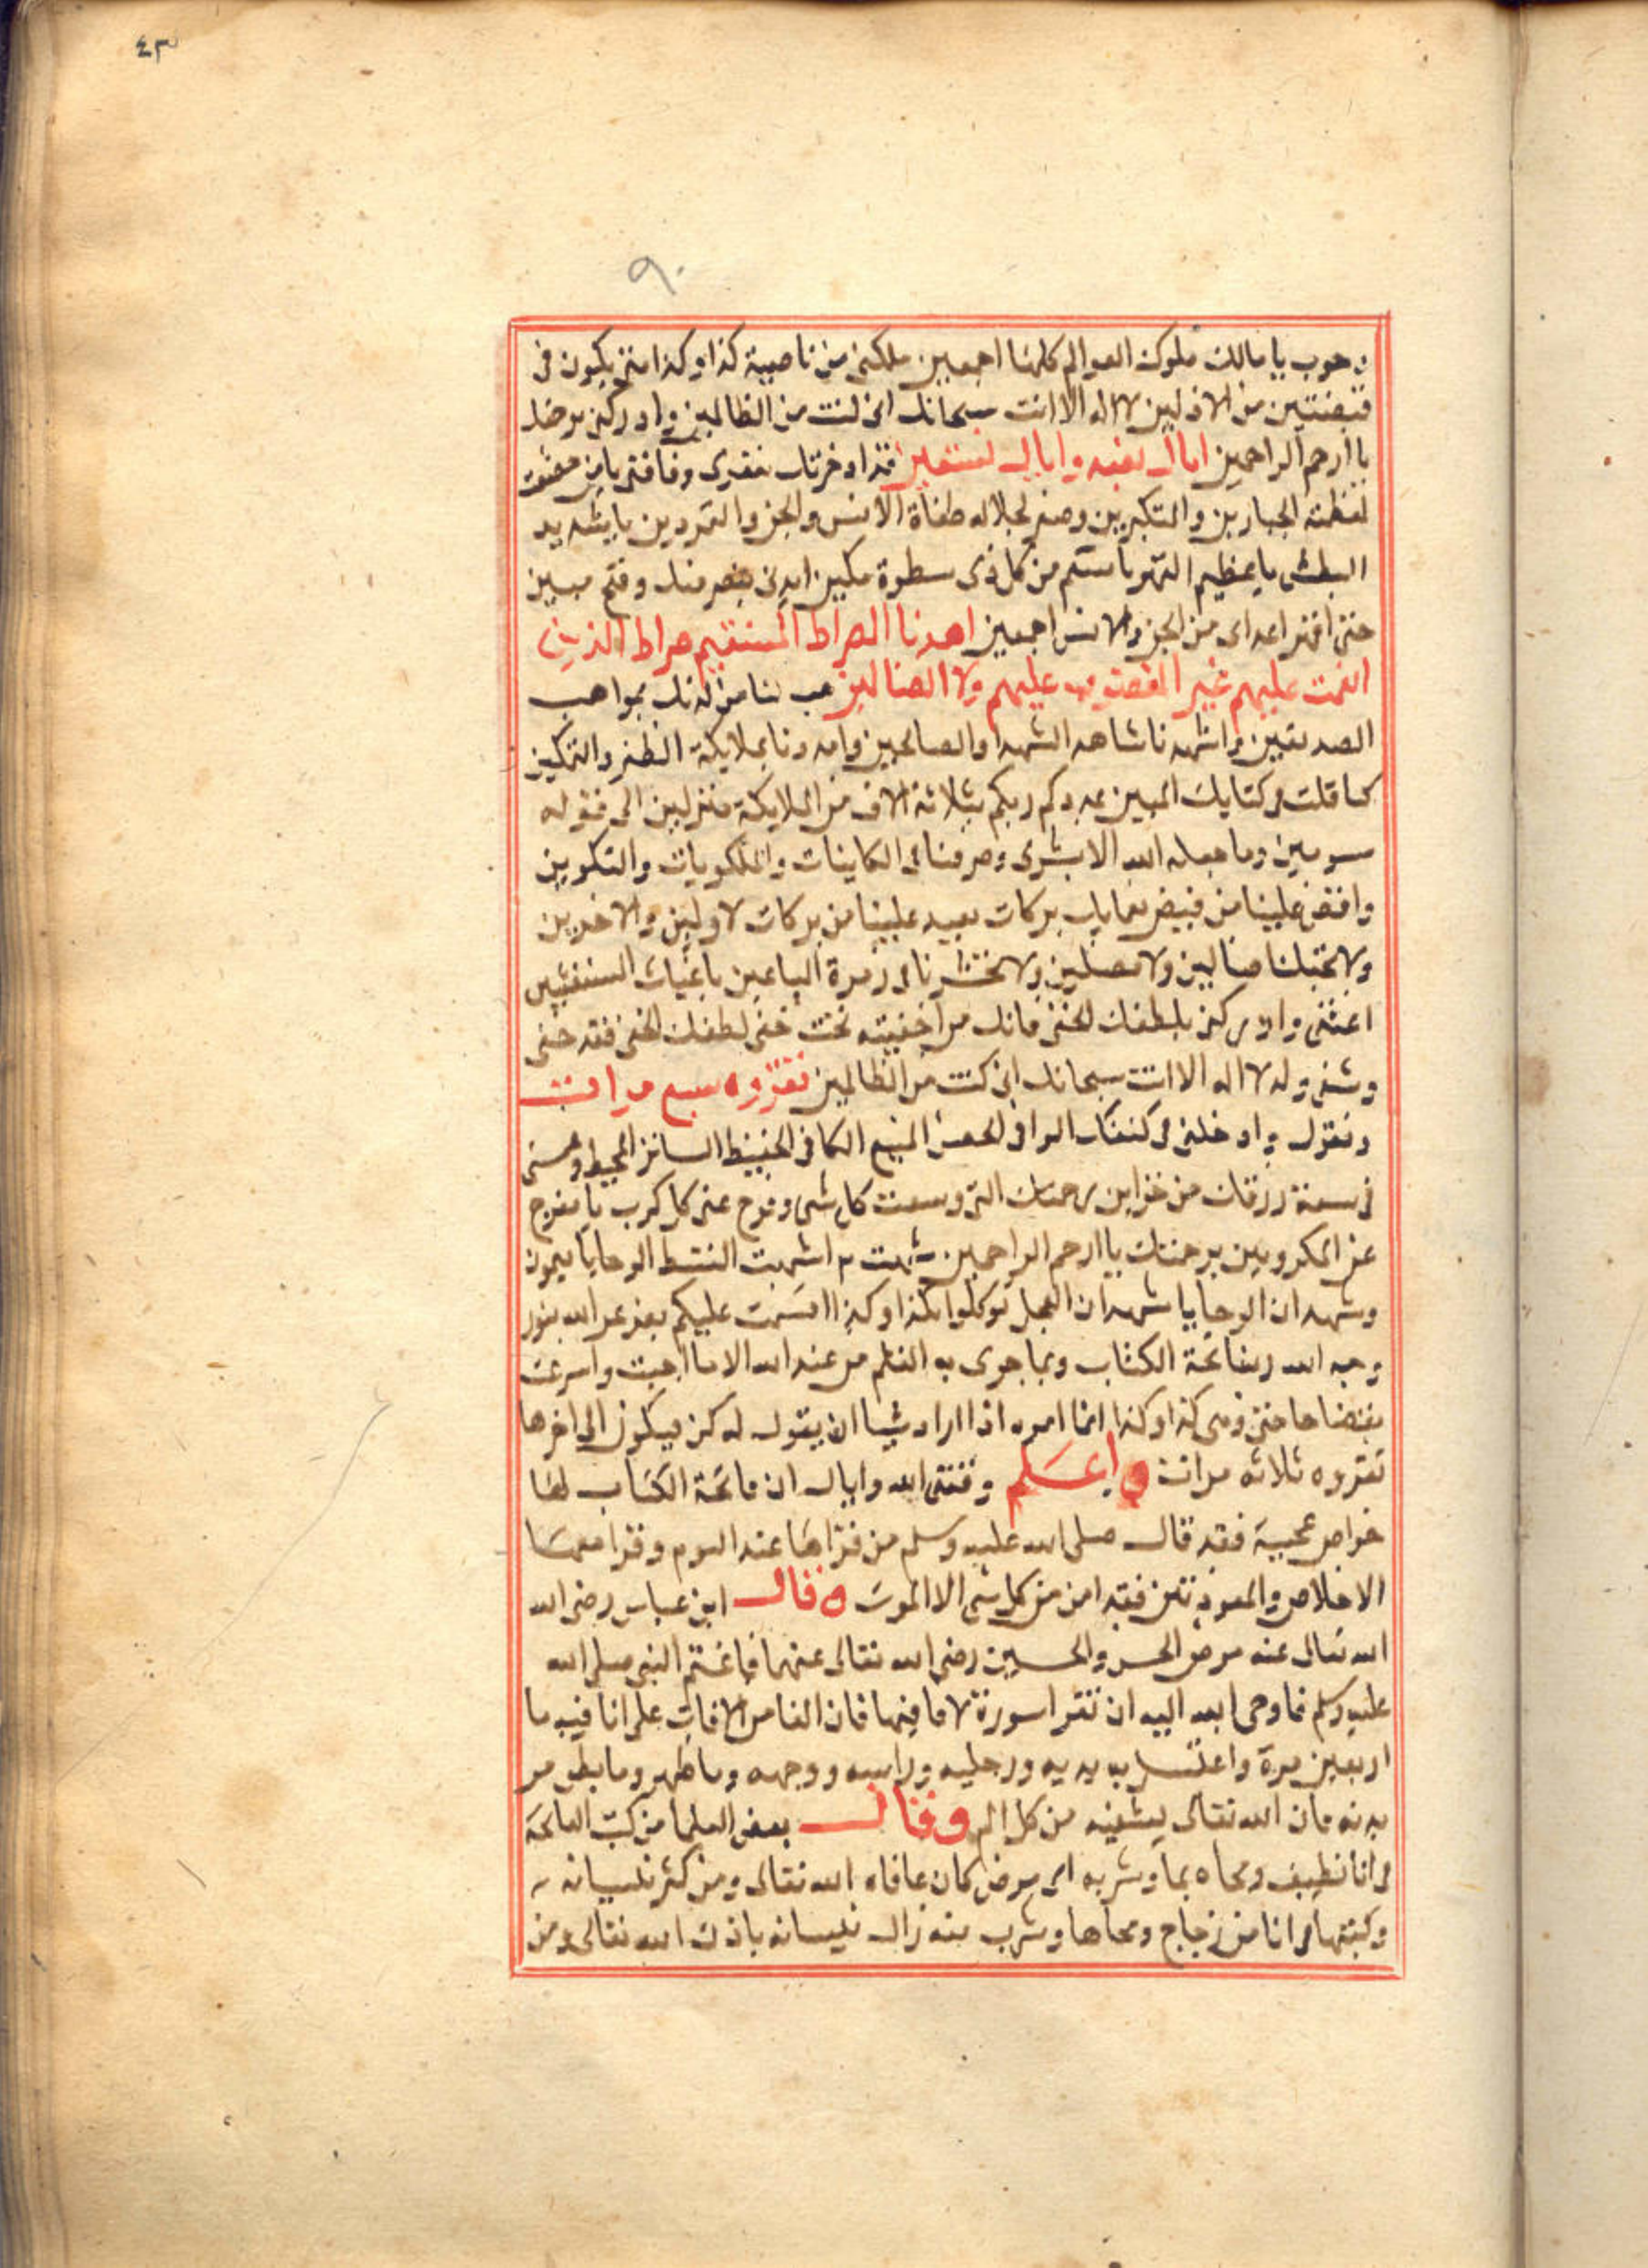 ٤٣
٩٠
وجوب يا مالك ملوك العوالم كلها اجمعين ملكني من ناصية كذا وكذا متى يكون في
قبضتين من الاذلين لا اله الا انت سبحانك اني كنت من الظالمين وادركني
يا ارحم الراحمين اياك نعبد واياك نستعين قد ادخرتك لفقري وفاقتي يا من
لعظمته الجبارين والمتكبرين وجلاله طغاة الانس والجن والمتمردين يا شديد
البطش يا عظيم القهر يا منتقم من كل ذي سطوة مكين ايدني بنصر منك وفتح مبين
حتى اقهر اعداي من الجن والانس اجمعين اهدنا الصراط المستقيم صراط الذين
انعمت عليهم غير المغضوب عليهم ولا الضالين هب لنا من لدنك مواهب
الصديقين واشهدنا مشاهد الشهدا والصالحين وامددنا بملايكة الظفر والتمكين
كما قلت في كتابك المبين يمددكم ربكم بثلاثة الاف من الملايكة منزلين الى قوله
مسومين وما جعله الله الا بشرى وصرفنا في الكاينات والملكويات والتكوين
وافض علينا من فيض بركات من بركات الاولين والاخرين
ولا تجعلنا ضالين ولا مضلين ولا تحشرنا في زمرة الباغين يا غياث المستغيثين
اغثني وادركني بلطفك الخفي فانك من اخفيته تحت خفي لطفك الخفي فقد خفى
وشفى وله لا اله الا انت سبحانك اني كنت من الظالمين تقروه سبع مرات
وتقول وادخلني في كنفك الوافي الحصن المنيع الكافي الحفيظ الساتر المحيط
في سعة رزقك من خزاين رحمتك التي وسعت كل شي وفرج عني كل كرب يا مفرج
عن المكروبين برحمتك يا ارحم الراحمين
توكلوا بكذا وكذا اقسمت عليكم بعز عز الله بنور
وجه الله وبفاتحة الكتاب وبما جرى به القلم من عند الله الا ما اجبت واسرعت
بقضا حاجتي وهي كذا وكذا انما امره اذا اراد شيا ان يقول له كن فيكون الى اخرها
تقروه ثلاثه مرات واعلم وفقني الله واياك ان فاتحة الكتاب لها
خواص عجيبة فقد قال صلى الله عليه وسلم من قراها عند النوم وقرا معها
الاخلاص والمعوذتين فقد امن من كل شي الا الموت وقال ابن عباس رضى الله
الله تعالى عنه مرض الحسن والحسين رضى الله تعالى عنهما فاغتم النبي صلى الله
عليه وسلم فاوحى الله اليه ان تقرا سورة لا فا فيها فان الفا من الافات على انا فيه ما
اربعين مرة واغسل به يديه ورجليه وراسه ووجهه وما ظهر وما بطن من
بدنه فان الله تعالى يشفيه من كل الم وقال بعض العلما من كتب الفاتحة
في انا نظيف ومحاه بما وشربه اي مرض كان عافاه الله تعالى ومن كثر نسيانه
وكتبها في انا من زجاج ومحاها وشرب منه زال نسيانه باذن الله تعالى ومن